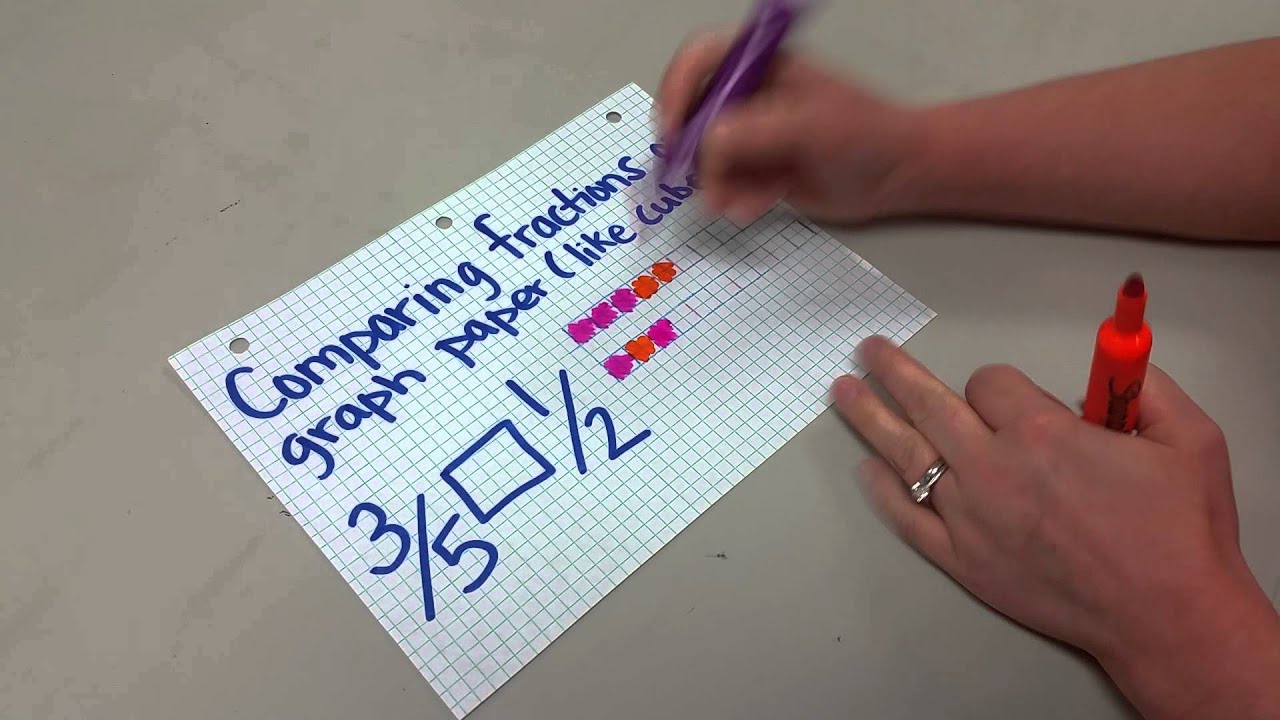 Comparing fractions
graph paper (like
3/5 □ 1/2